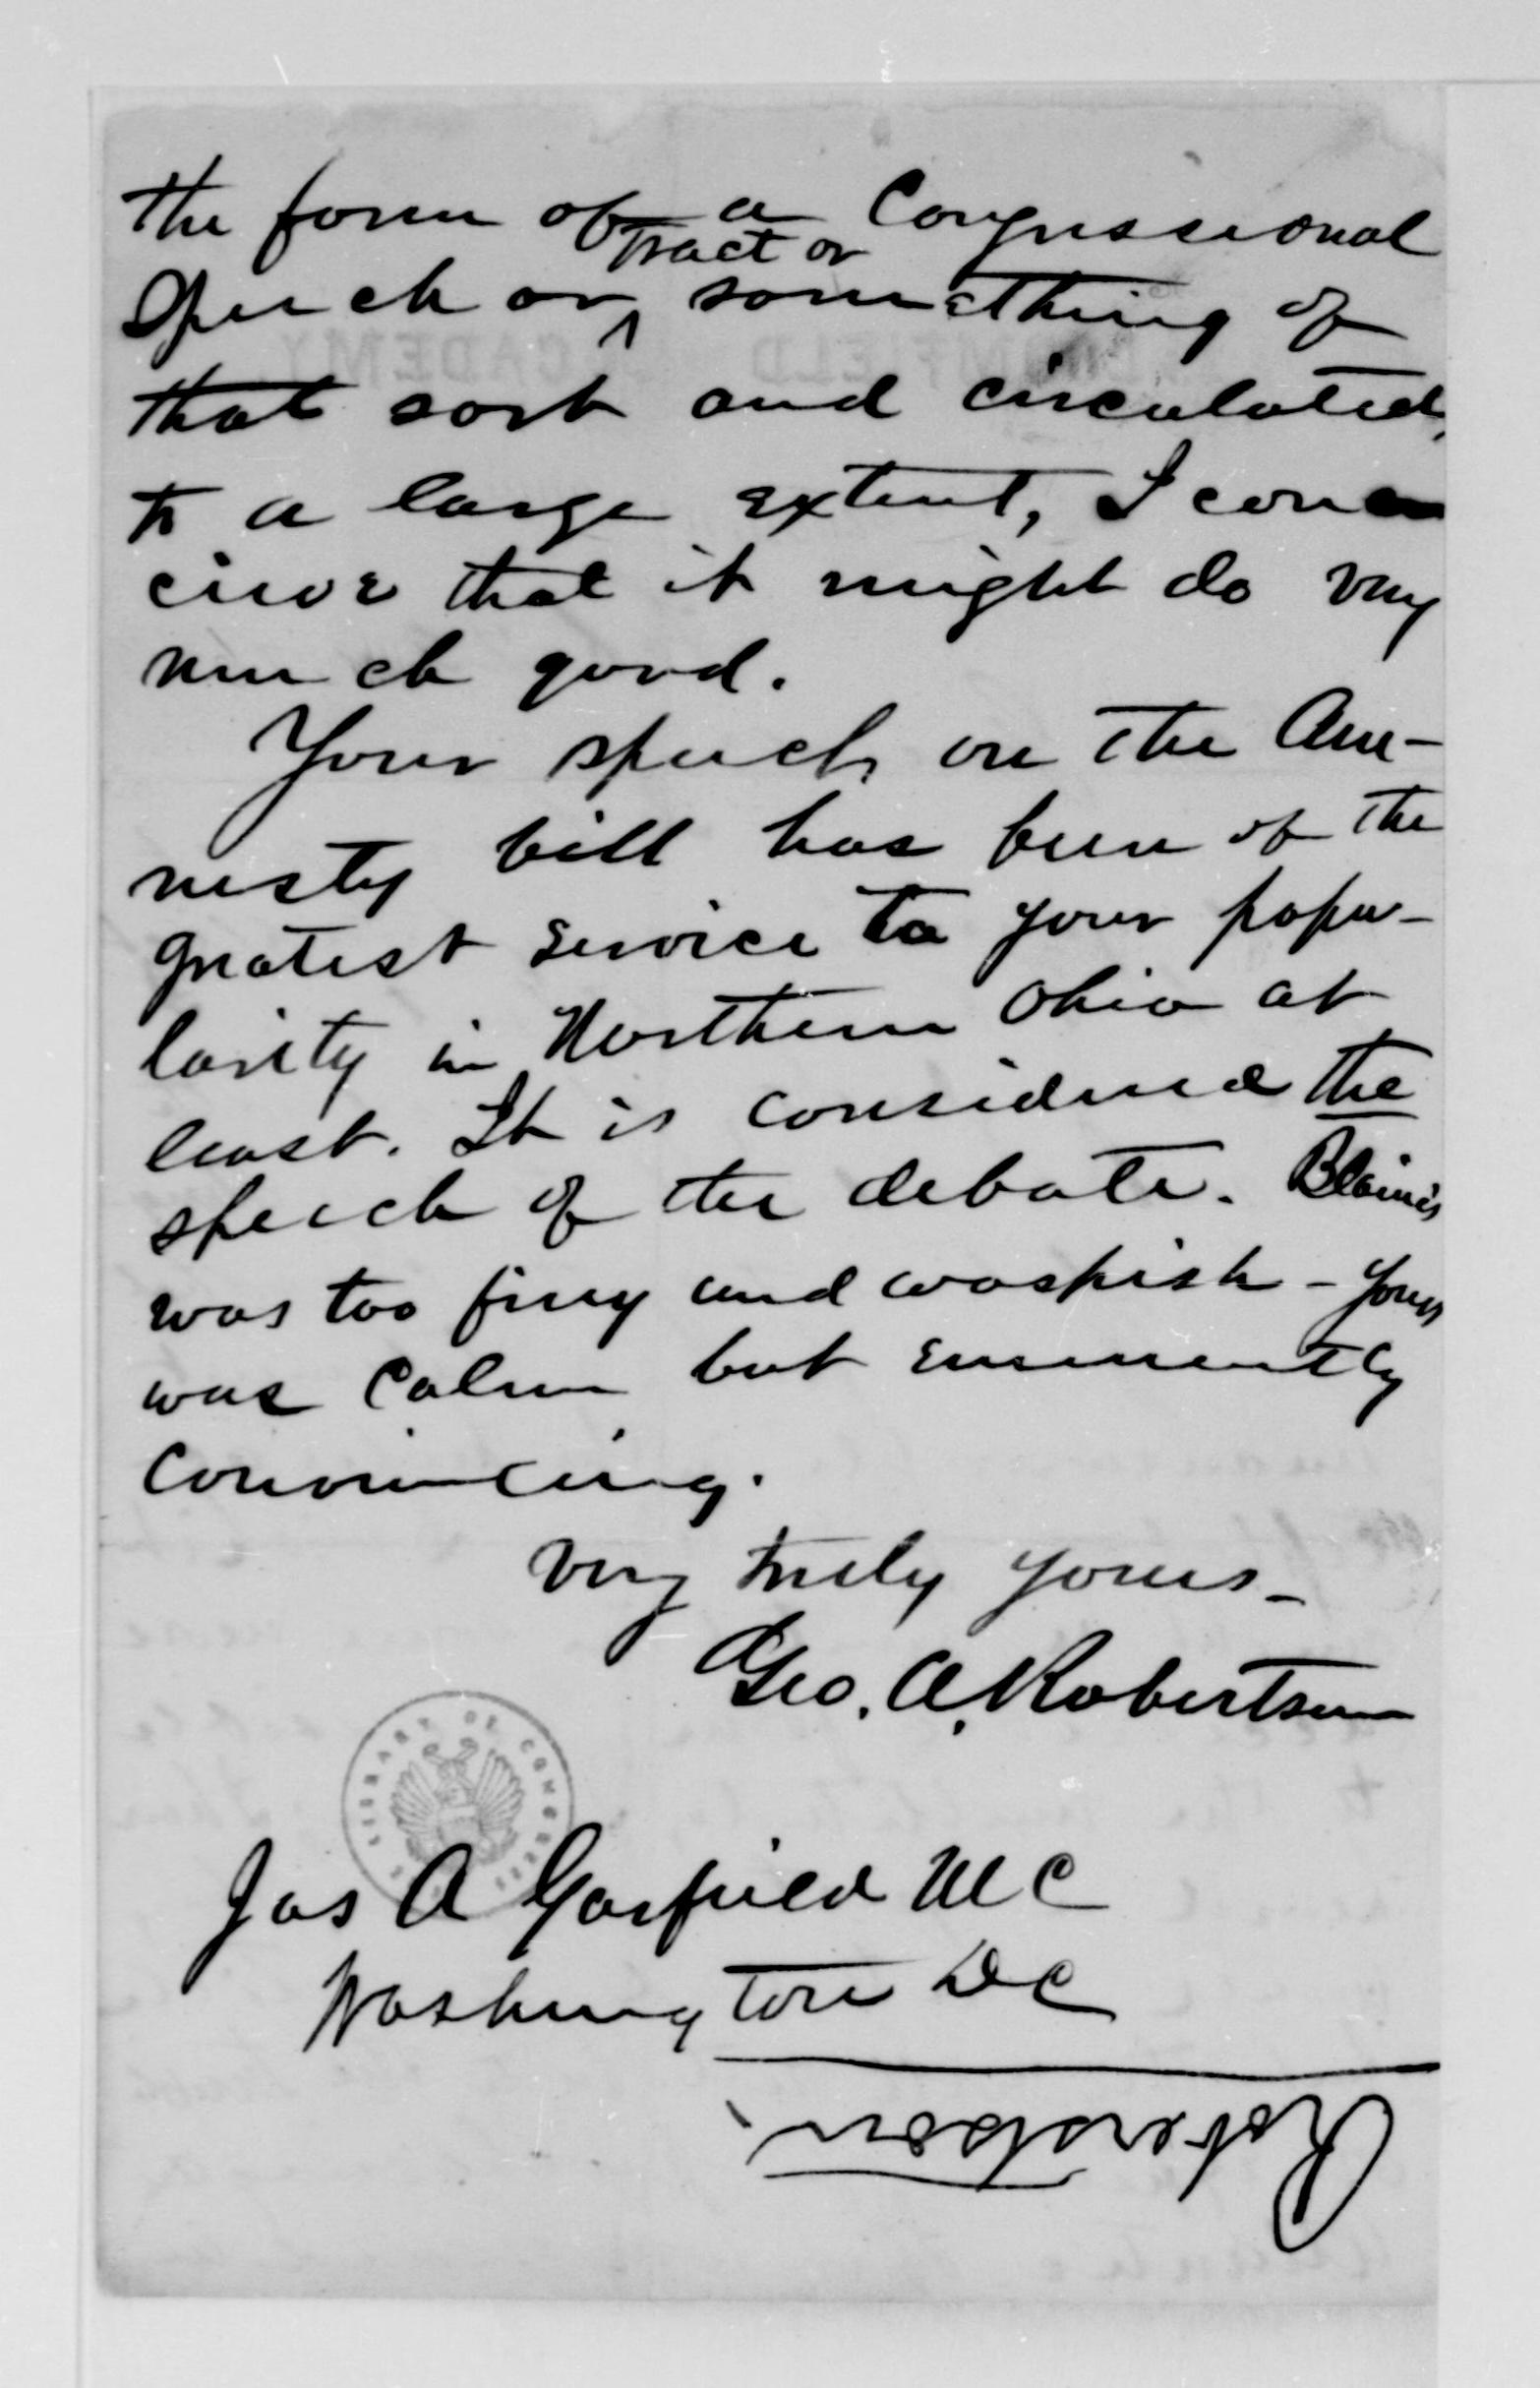 the form of a Congressional
Speech or ^ tract or something of
that sort and circulated,
to a large extent, I con-
ceive that it might do very
much good.
Your speech on the Am-
nesty bill has been of the
greatest service to your popu-
larity in Northern Ohio at
least. It is considered the
speech of the debate. Blaine's
was too firey and waspish - yours
was calm but eminently
convincing.
Very truly yours -
Geo. A. Robertson
LIBRARY OF CONGRESS
Jas A Garfield M C
Washington D C
Robertson